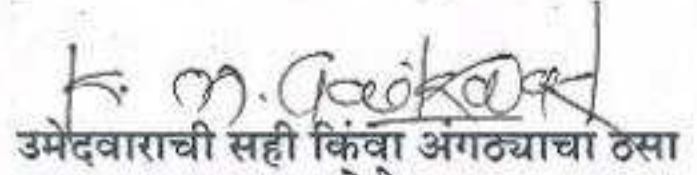 K. M. Gaikwad
उमेदवाराची सही किंवा अंगठ्याचा ठसा